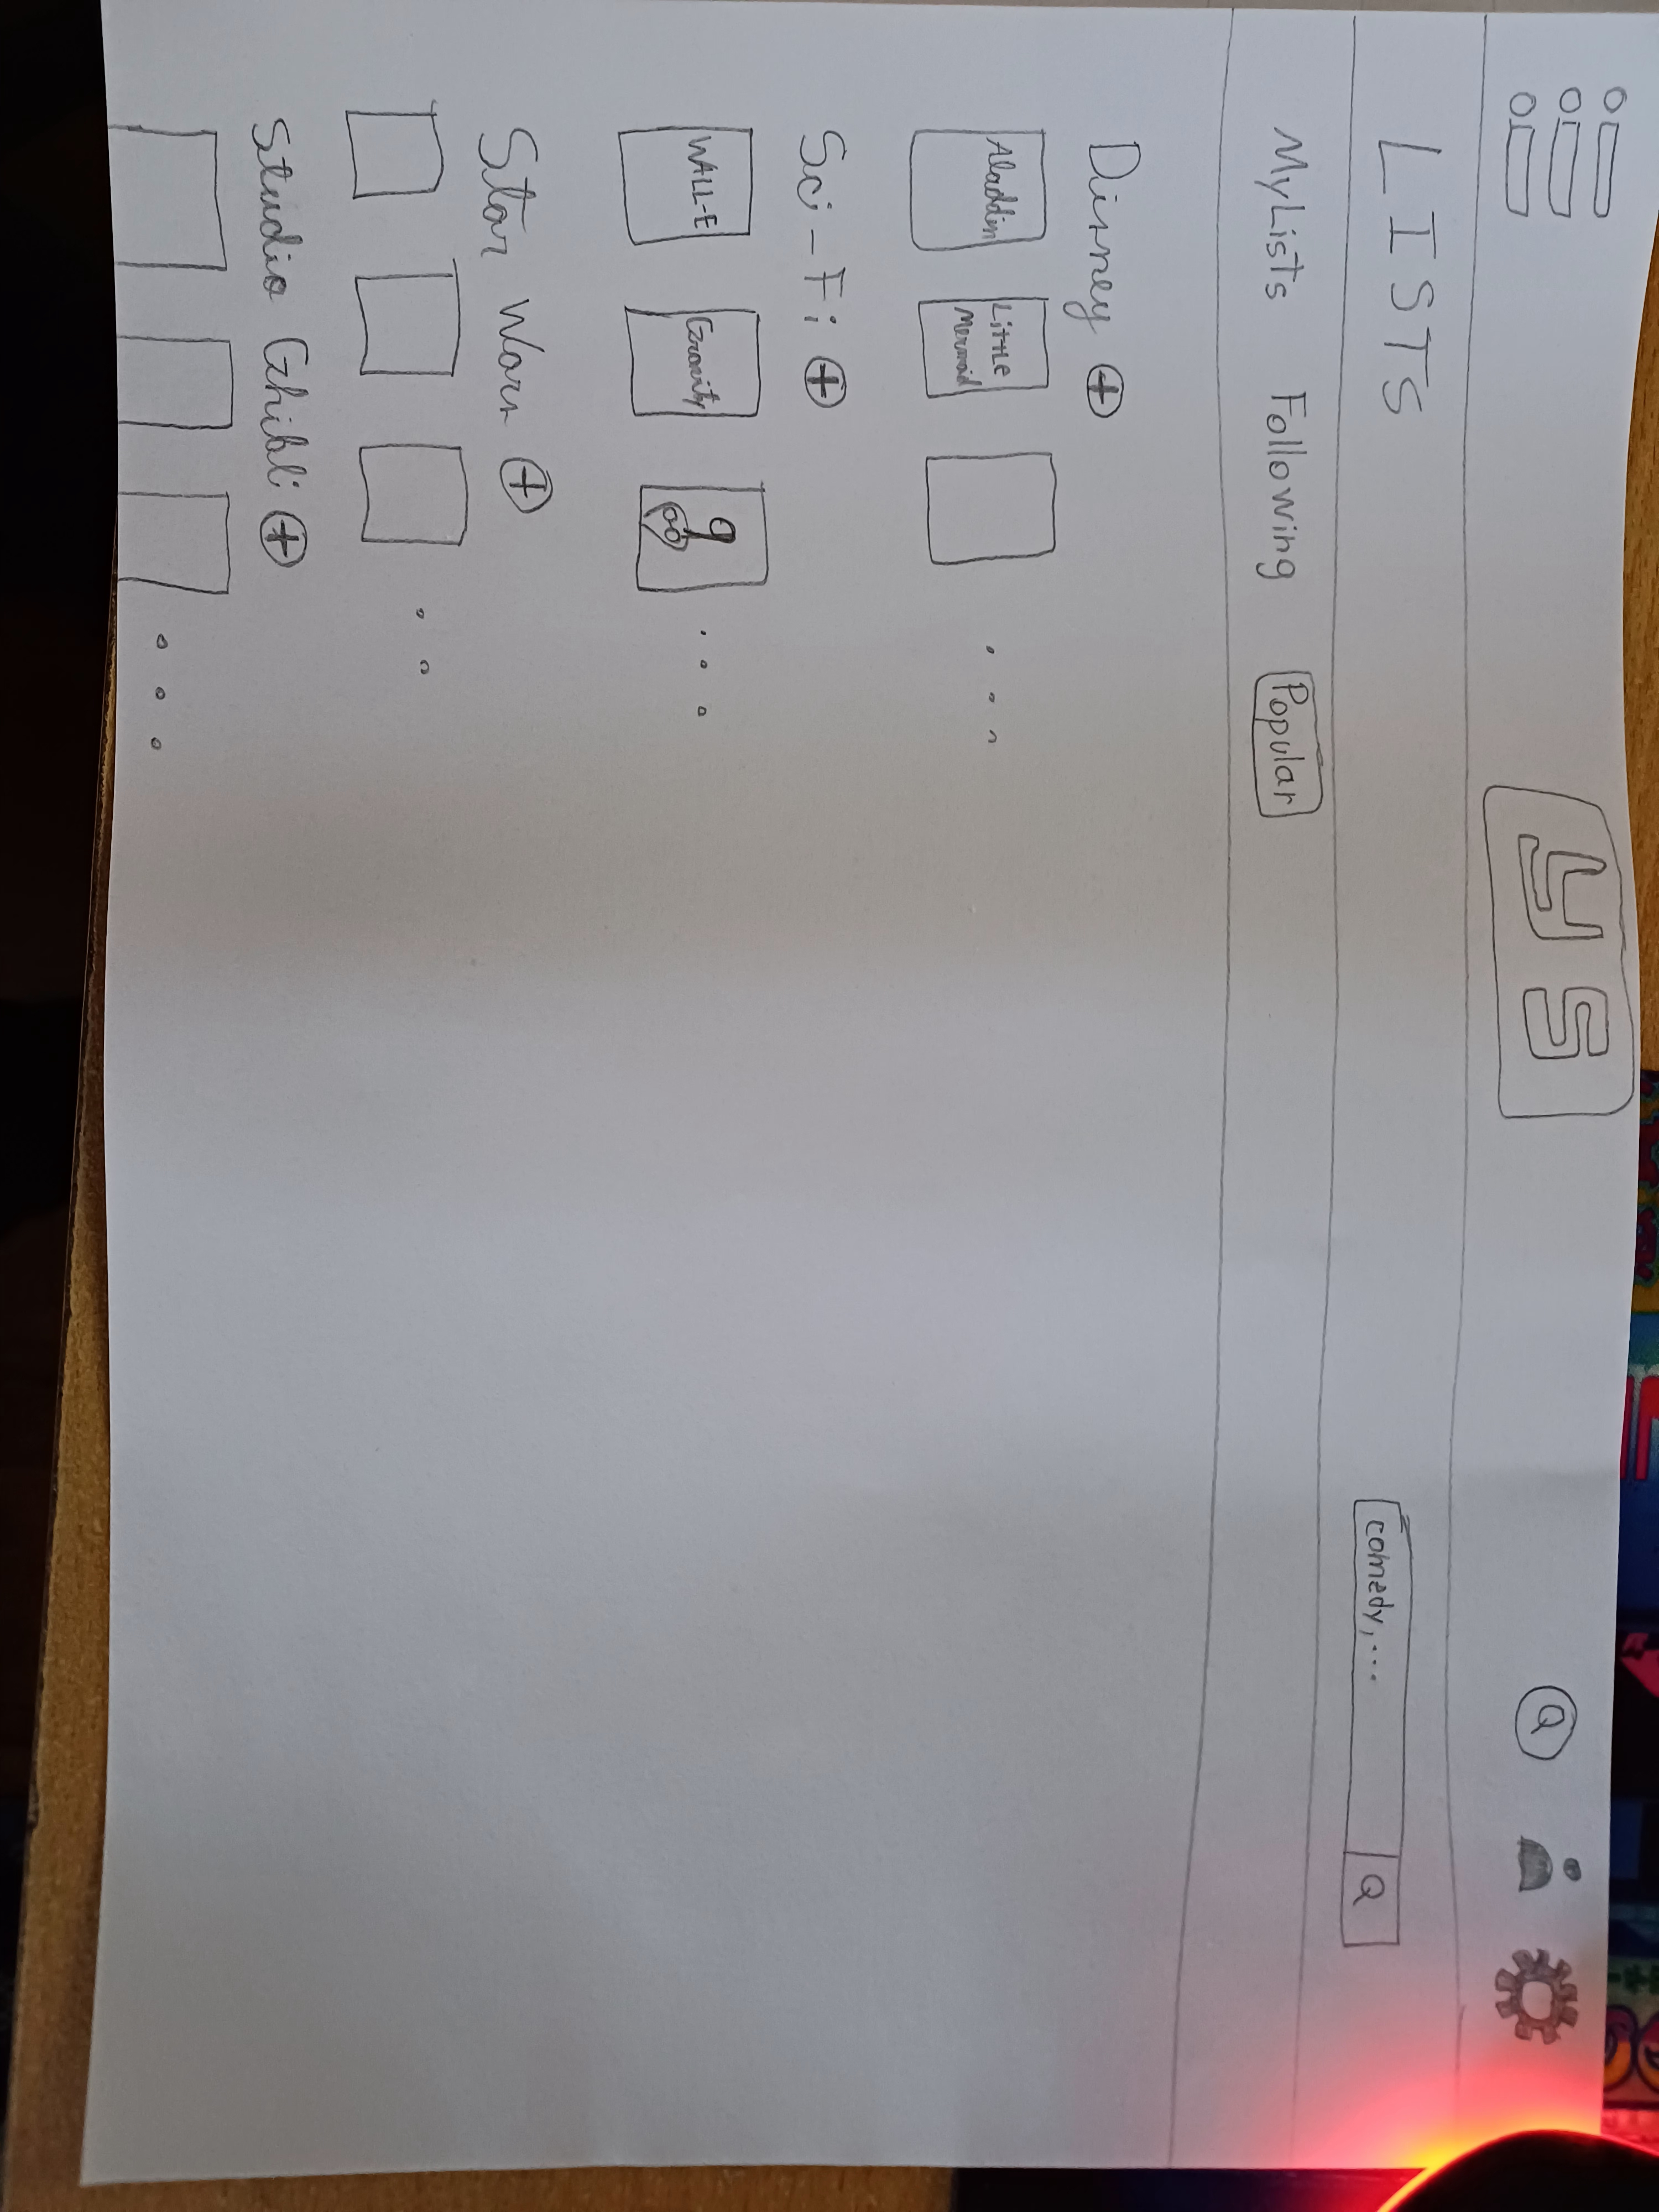 YS
LISTS
comedy,...
MyLists Following Popular
Disney +
Aladdin
Little
Mermaid
Sci-Fi +
WALL-E
Gravity
9
Star Wars +
Studio Ghibli +